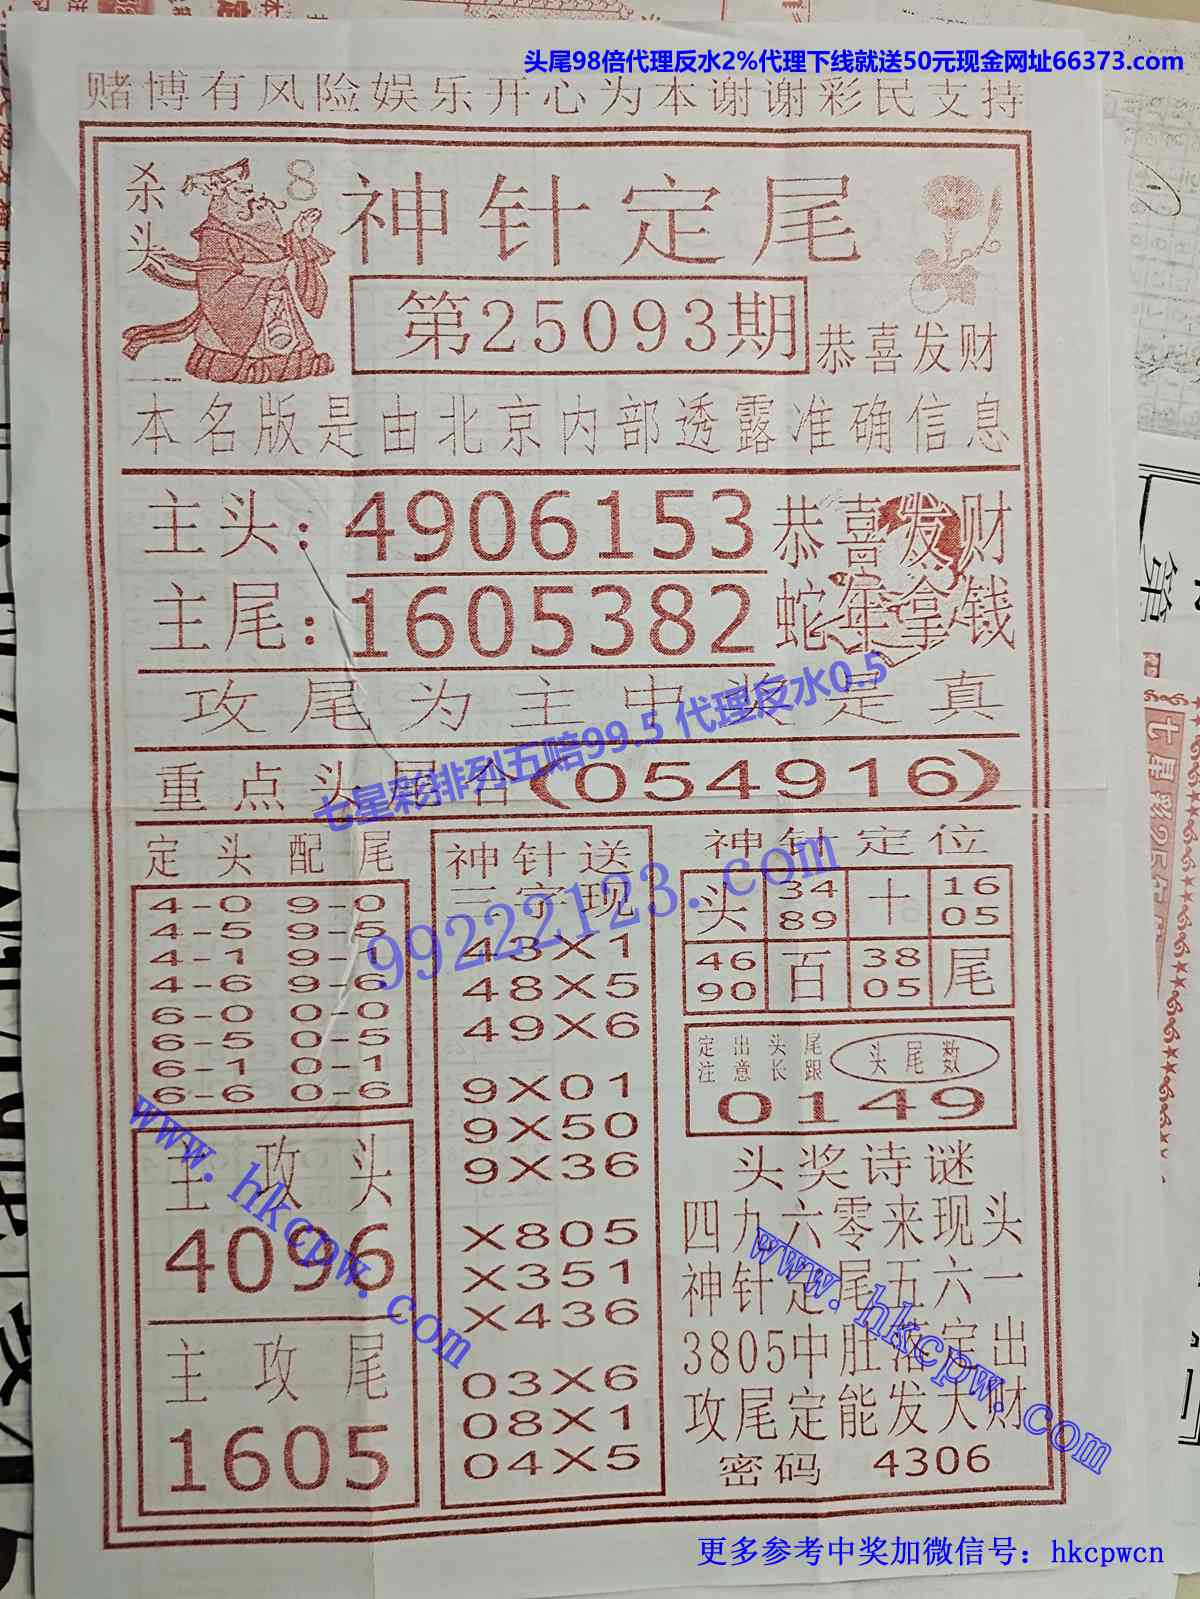 头尾98倍代理反水2%代理下线就送50元现金网址66373.com
赌博有风险娱乐开心为本谢谢彩民支持
杀头
8
神针定尾
第25093期
恭喜发财
本名版是由北京内部透露准确信息
主头：4906153 恭喜发财
主尾：1605382 蛇年拿钱
攻尾为主中奖是真
七星彩排列五赔99.5 代理反水0.5
重点头尾合(054916)
定头配尾
4-0 9-0
4-5 9-5
4-1 9-1
4-6 9-6
6-0 0-0
6-5 0-5
6-1 0-1
6-6 0-6
主攻头
4096
主攻尾
1605
神针送
三字现
43X1
48X5
49X6
9X01
9X50
9X36
X805
X351
X436
03X6
08X1
04X5
99222123.com
神针定位
头 34 十 16
89 05
46 百 38 尾
90 05
定出头尾
注意长跟
头尾数
0149
头奖诗谜
四九六零来现头
神针定尾五六一
3805中肚落定出
攻尾定能发大财
密码 4306
www.hkcpw.com
www.hkcpw.com
更多参考中奖加微信号：hkcpwcn
第
七星彩